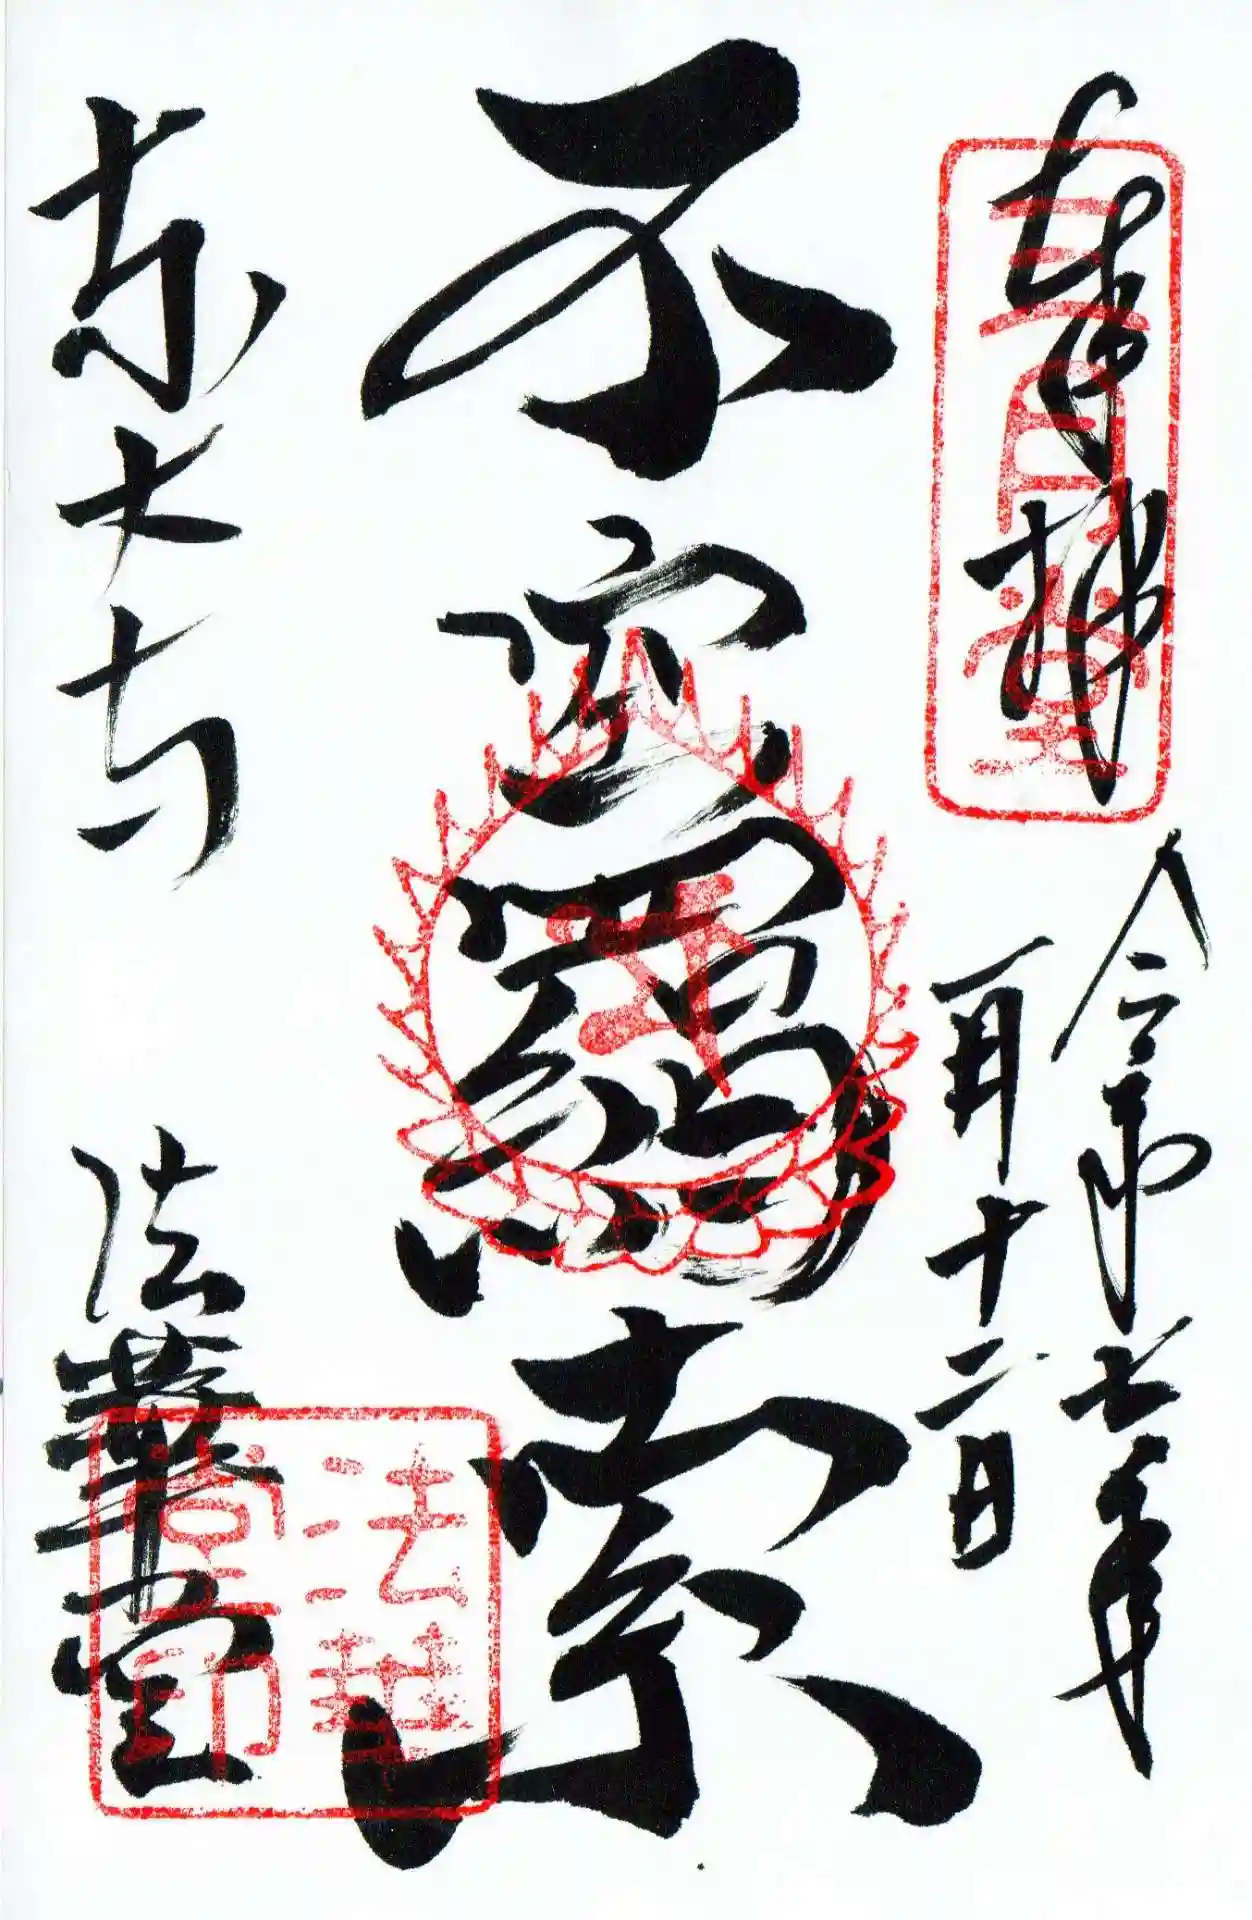 奉拝
三月堂
令和七年
一月十二日
不空羂索
東大寺
法華堂
法華
堂印